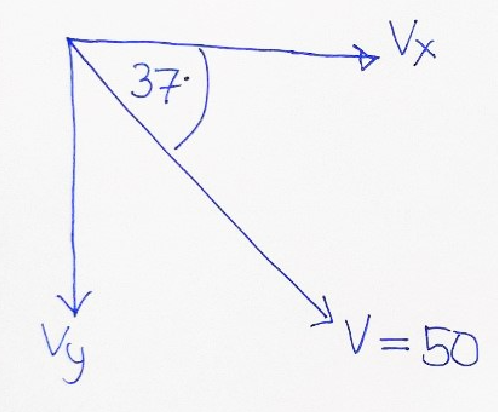 Vx
37°
Vy
V = 50